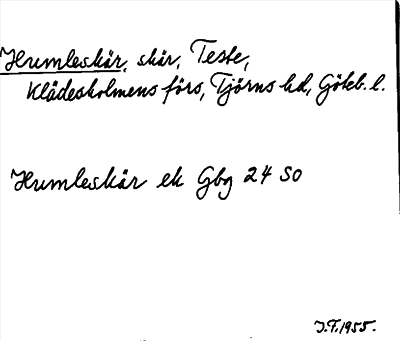 Humleskär, skär, Teste,
Klädesholmens förs, Tjörns hd, Göteb. l.
Humleskär ek Gbg 24 SO
J.F. 1955.